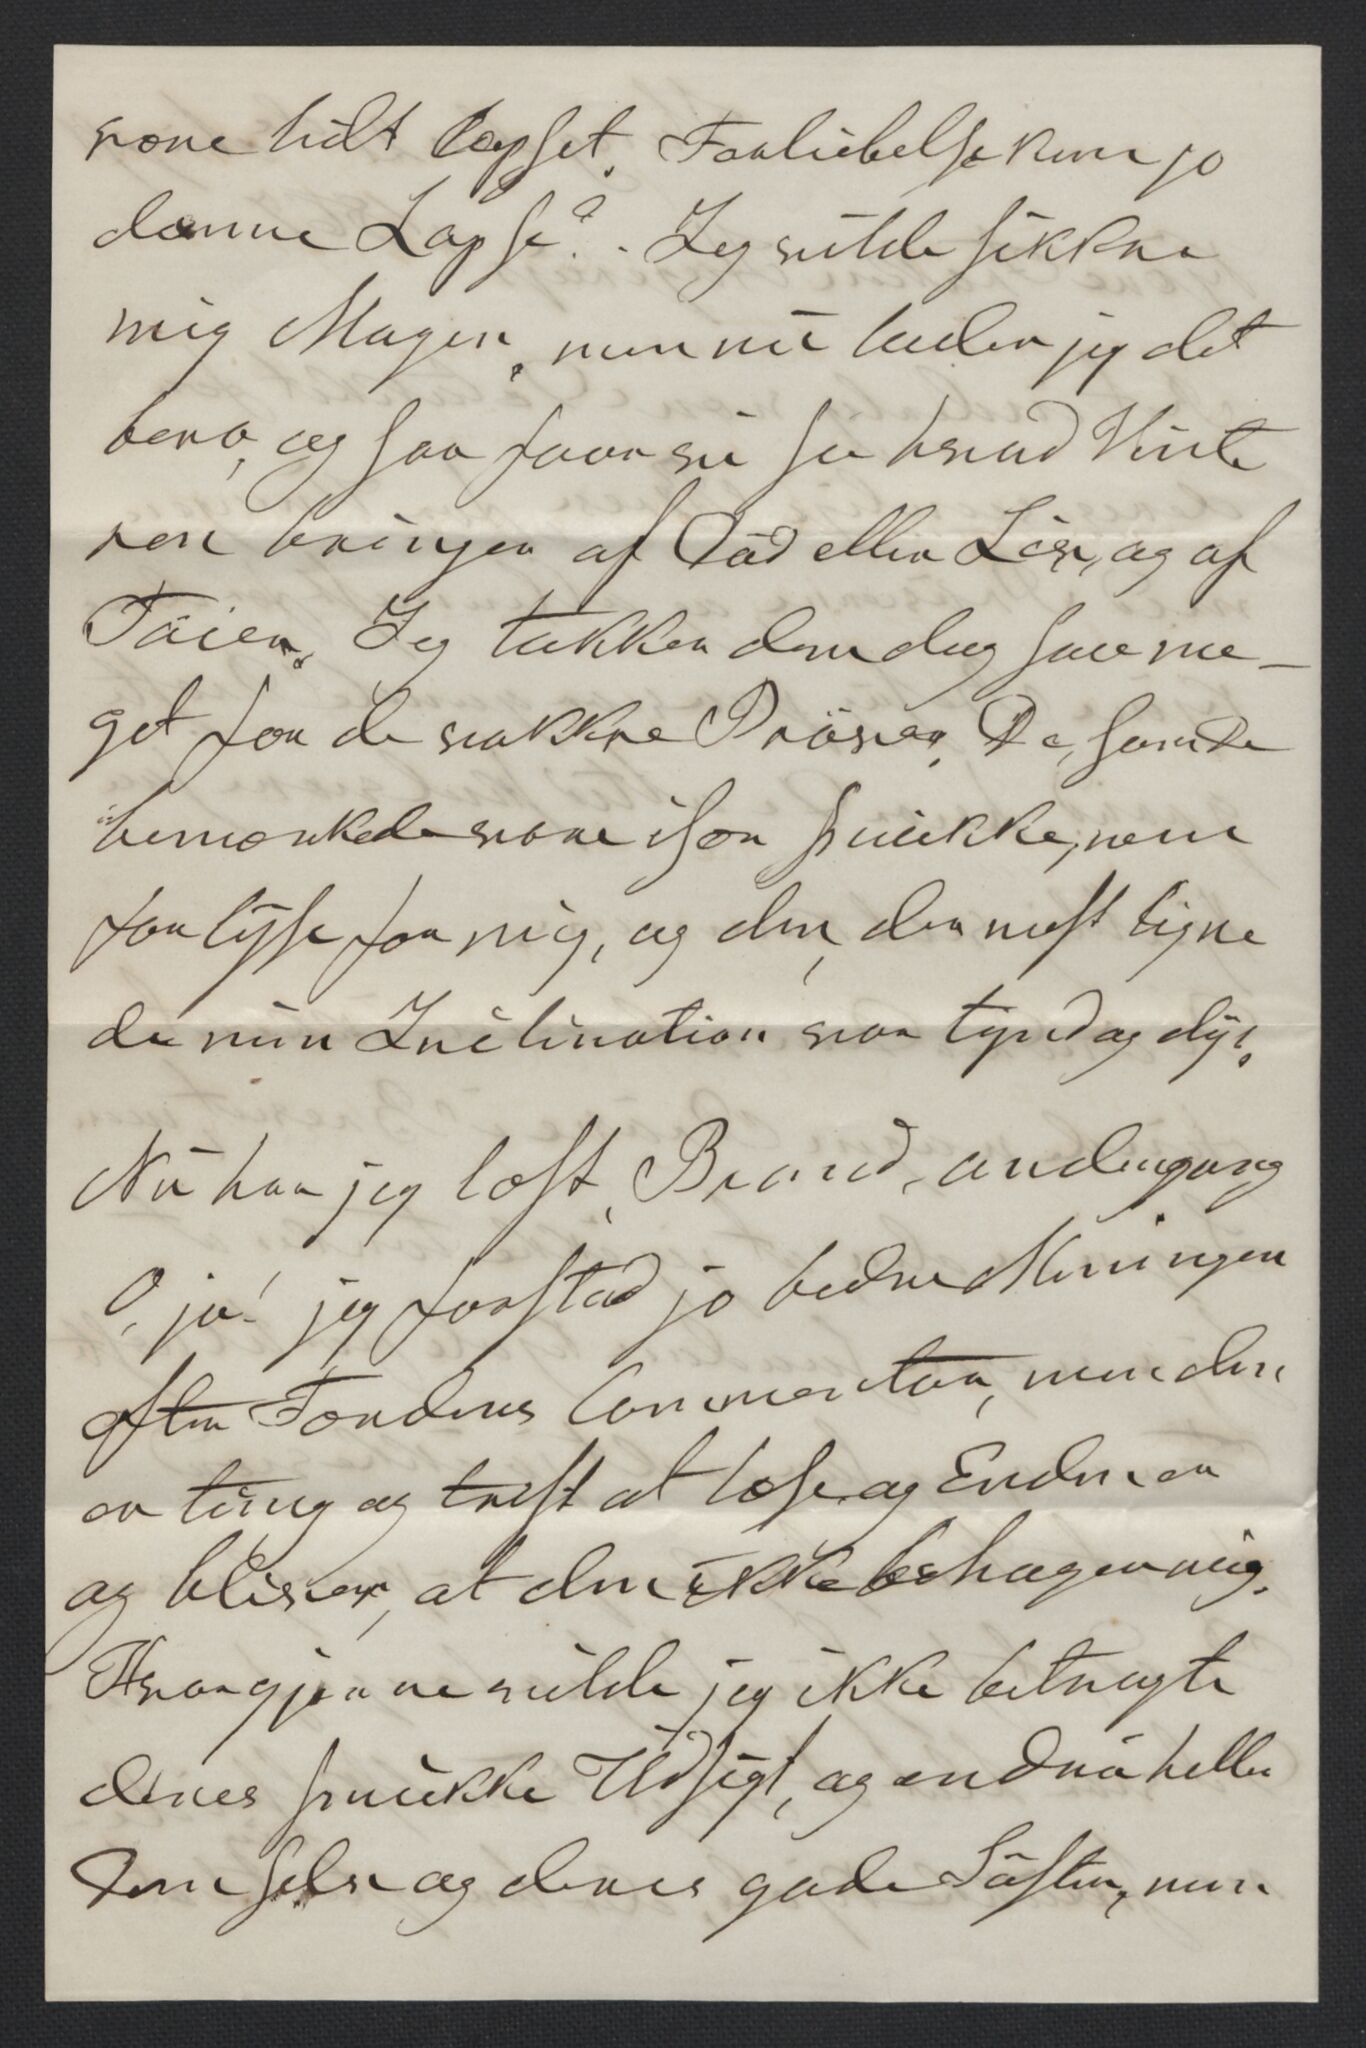 være lidt lapset. Forliebelse kun jo
danne Lapse? . Jeg vilde sikkre
mig Magen, men nu lader jeg det
bero, og saa faar vi see hvad Vinte
ren bringer af Död eller Liv, og af
Töier. Jeg takker dem dog saa me-
get for de vakkre Pröver. De, som De
bemærkede vare især smukke, men
for lyse for mig, og den, der mest ligne
de min Inclination var tynd og dyr.
Nu har jeg læst, Brand, andengang
O, ja! jeg forstod jo bedre Meningen
efter Fondenes Commentar, men den
er tung og trist at læse og Enden er
og bliver, at den ikke behager mig.
Hvor gjerne vilde jeg ikke betragte
deres smukke Udsigt, og endnu heller
Dem selv og deres gode Söster, men